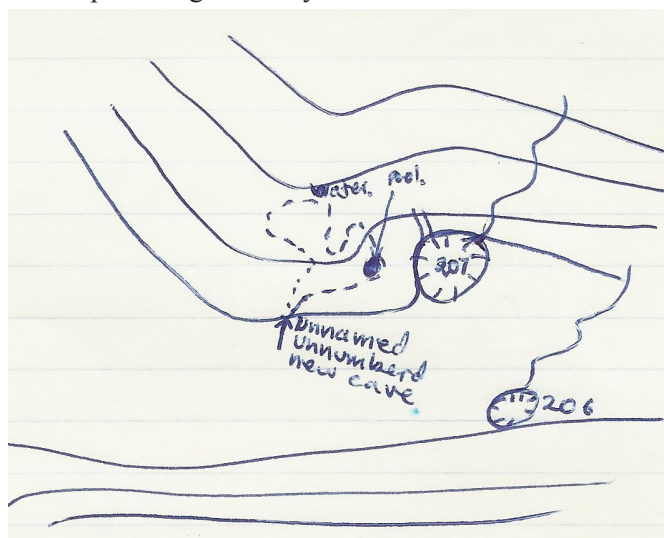 water. pool.
207
unnamed
unnumberd
new cave
206